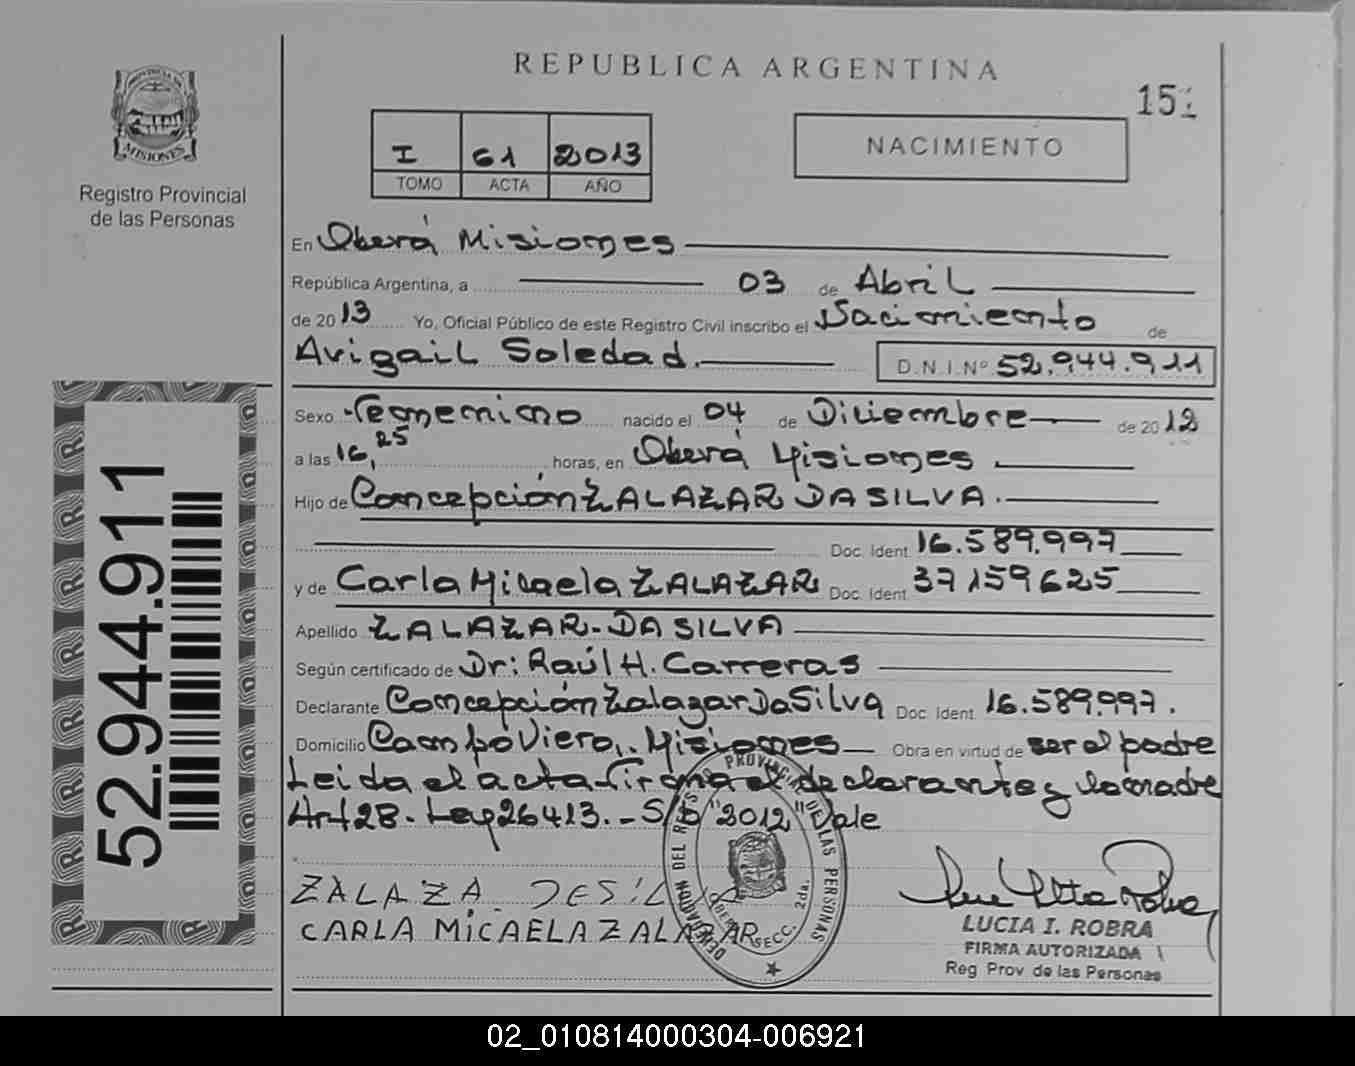 REPUBLICA ARGENTINA
PROVINCIA DE
MISIONES
Registro Provincial
de las Personas
I 61 2013
TOMO ACTA AÑO
NACIMIENTO
En Oberá Misiones
República Argentina, a 03 de Abril
de 2013 Yo, Oficial Público de este Registro Civil inscribo el Nacimiento de
Avigail Soledad. D.N.I.Nº 52.944.911
Sexo Femenino nacido el 04 de Diciembre de 2012
a las 16,25 horas, en Oberá Misiones
Hijo de Concepción ZALAZAR DA SILVA.
Doc. Ident 16.589.997
y de Carla Micaela ZALAZAR Doc. Ident. 37159625
Apellido ZALAZAR-DA SILVA
Según certificado de Dr: Raúl H. Carreras
Declarante Concepción Zalazar Da Silva Doc Ident 16.589.997.
Domicilio Campo Viera, Misiones Obra en virtud de ser el padre
Leida el acta firma el declarante y la madre
Art 28. Ley 26413.- S/b "2012" Vale
ZALAZA DESIL
CARLA MICAELA ZALAZAR
DELEGACION DEL REGISTRO PROVINCIAL DE LAS PERSONAS
OBERA SECC. 2da.
LUCIA I. ROBRA
FIRMA AUTORIZADA
Reg Prov de las Personas
52.944.911
02_010814000304-006921